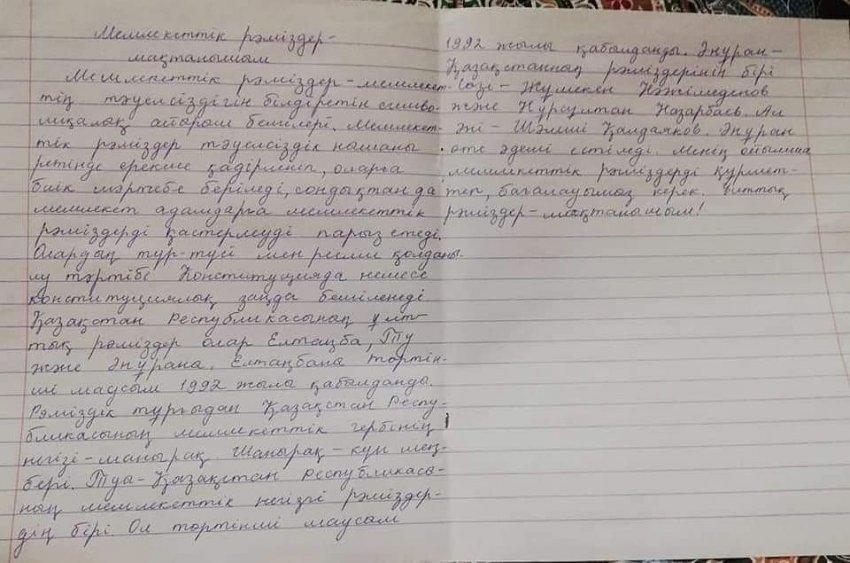 Мемлекеттік рәміздер-
мақтанышым
Мемлекеттік рәміздер-мемлекет-
тің тәуелсіздігін білдіретін симво-
ликалық айырым белгілері. Мемлекет-
тік рәміздер тәуелсіздік нышаны
ретінде ерекше қадірленіп, оларға
биік мәртебе беріледі, сондықтан да
мемлекет адамдарға мемлекеттік
рәміздерді қастерлеуді парыз етеді.
Олардың түр-түсі мен ресми қолданы-
лу тәртібі Конституцияда немесе
конституциялық заңда белгіленеді
Қазақстан Республикасының ұлт-
тық рәміздер олар Елтаңба, Ту
және Әнұрана. Елтаңбана төртін-
ші маусым 1992 жылы қабылданды.
Рәміздік тұрғыдан Қазақстан Респу-
бликасының мемлекеттік гербінің
негізі-шаңырақ. Шаңырақ-күн шең-
бері. Туа-Қазақстан Республикасы-
ның мемлекеттік негізгі рәміздер-
дің бірі. Ол төртінші маусым
1992 жылы қабылданды. Әнұран-
Қазақстанның рәміздерінің бірі
Сөзі - Жұмекен Нәжімеденов
және Нұрсұлтан Назарбаев. Ал
әні - Шәмші Қалдаяқов. Әнұран
өте әдемі естіледі. Менің ойымша
мемлекеттік рәміздерді құрмет-
теп, бағалауымыз керек. Ұлттық
рәміздер-мақтанышым!